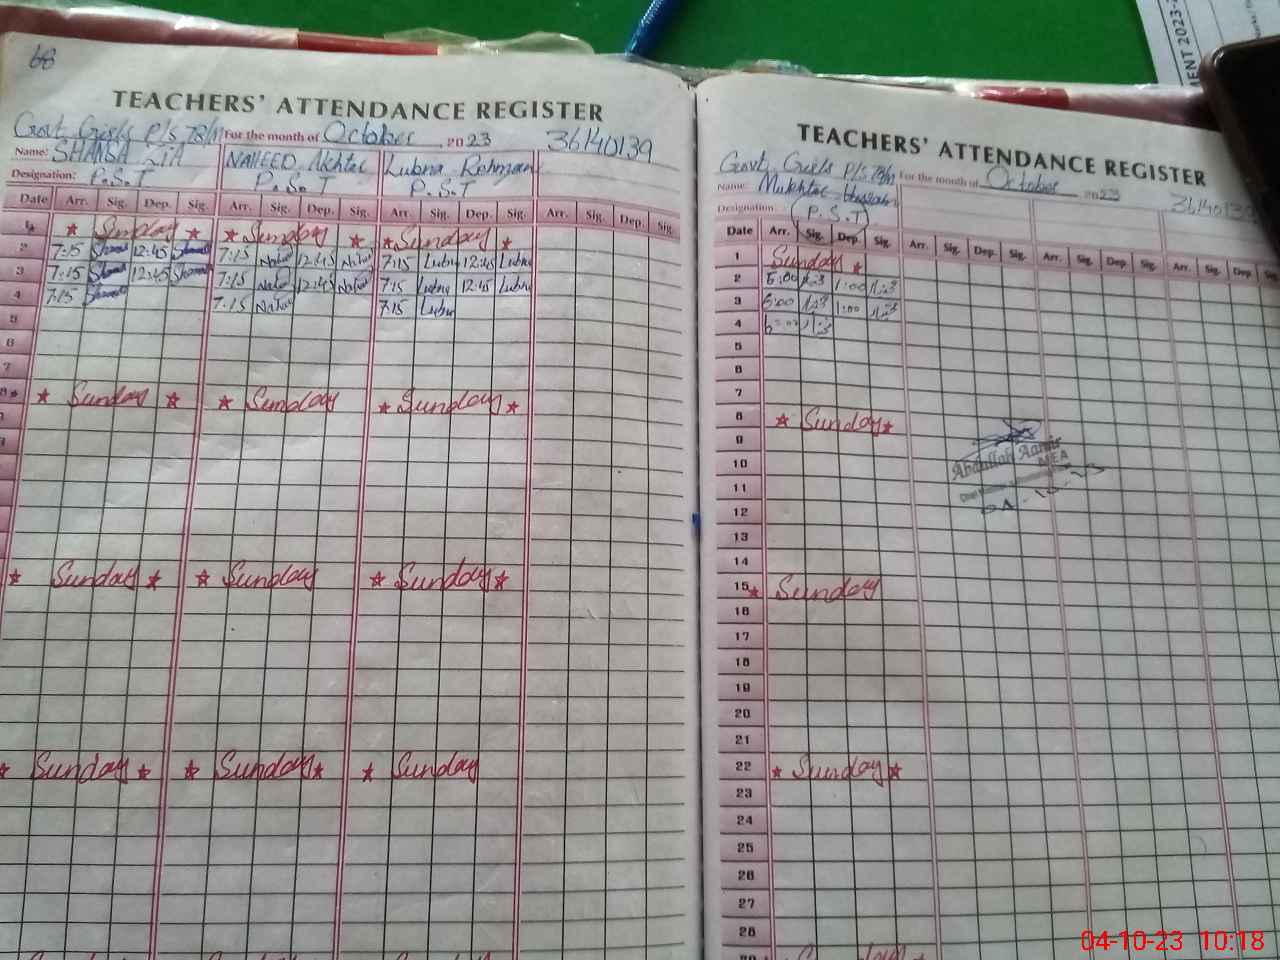 68
TEACHERS' ATTENDANCE REGISTER
Govt. Girls P/s 78/M For the month of October 2023 36140139
Name: SHAMSA ZIA NAHEED Akhtar Lubna Rehman
Designation: P.S.T P.S.T P.S.T
Date Arr. Sig. Dep. Sig. Arr. Sig. Dep. Sig. Arr. Sig. Dep. Sig. Arr. Sig. Dep. Sig.
1 Sunday Sunday Sunday
2 7:15 12:45 7:15 12:45 7:15 Lubna 12:45 Lubna
3 7:15 12:45 7:15 12:45 7:15 Lubna 12:45 Lubna
4 7:15 7:15 7:15 Lubna
5
6
7
8 Sunday Sunday Sunday
Sunday Sunday Sunday
Sunday Sunday Sunday
TEACHERS' ATTENDANCE REGISTER
Govt. Girls P/s 78/M For the month of October 2023 36140139
Name: Mukhtar Hussain
Designation: P.S.T
Date Arr. Sig. Dep. Sig. Arr. Sig. Dep. Sig. Arr. Sig. Dep. Sig. Arr. Sig. Dep. Sig.
1 Sunday
2 6:00 1:00
3 6:00 1:00
4 6:00
5
6
7
8 Sunday
9
10
11
12
13
14
15 Sunday
16
17
18
19
20
21
22 Sunday
23
24
25
26
27
28
Abdullah Aamir
MEA
MENT 2023-
04-10-23 10:18